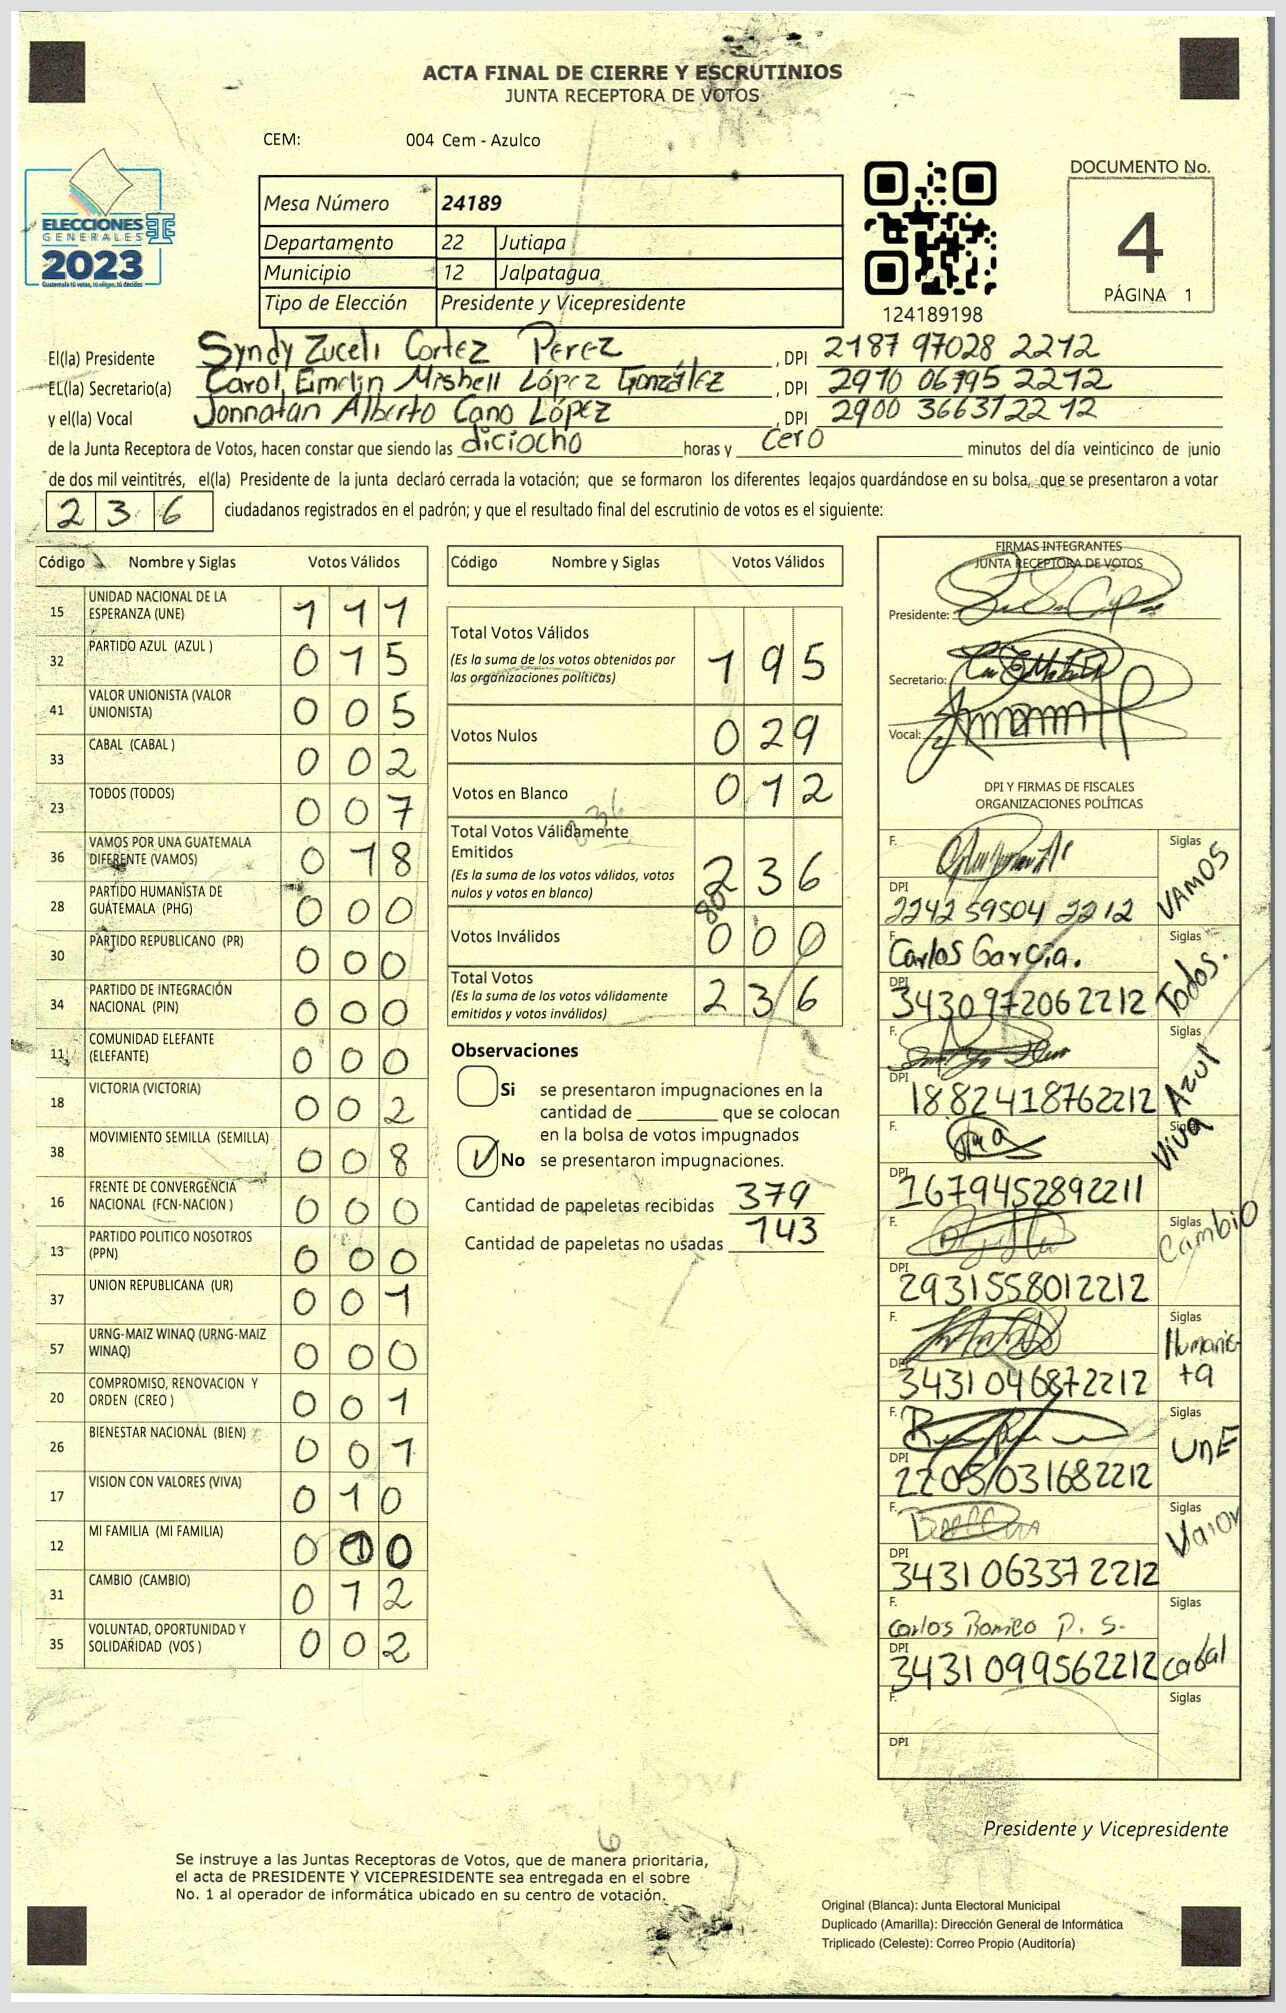 ACTA FINAL DE CIERRE Y ESCRUTINIOS
JUNTA RECEPTORA DE VOTOS
CEM: 004 Cem - Azulco
ELECCIONES
GENERALES
2023
Guatemala tú votas, tú eliges, tú decides
Mesa Número 24189
Departamento 22 Jutiapa
Municipio 12 Jalpatagua
Tipo de Elección Presidente y Vicepresidente
124189198
DOCUMENTO No.
4
PÁGINA 1
El(la) Presidente Syndy Zuceli Cortez Perez, DPI 2187 97028 2212
EL(la) Secretario(a) Carol Eimelin Mishell López González, DPI 2970 06795 2212
y el(la) Vocal Jonnatan Alberto Cano López, DPI 2900 36637 2212
de la Junta Receptora de Votos, hacen constar que siendo las diciocho horas y cero minutos del día veinticinco de junio
de dos mil veintitrés, el(la) Presidente de la junta declaró cerrada la votación; que se formaron los diferentes legajos quardándose en su bolsa, que se presentaron a votar
236 ciudadanos registrados en el padrón; y que el resultado final del escrutinio de votos es el siguiente:
Código Nombre y Siglas Votos Válidos
15 UNIDAD NACIONAL DE LA ESPERANZA (UNE) 111
32 PARTIDO AZUL (AZUL ) 015
41 VALOR UNIONISTA (VALOR UNIONISTA) 005
33 CABAL (CABAL ) 002
23 TODOS (TODOS) 007
36 VAMOS POR UNA GUATEMALA DIFERENTE (VAMOS) 018
28 PARTIDO HUMANISTA DE GUATEMALA (PHG) 000
30 PARTIDO REPUBLICANO (PR) 000
34 PARTIDO DE INTEGRACIÓN NACIONAL (PIN) 000
11 COMUNIDAD ELEFANTE (ELEFANTE) 000
18 VICTORIA (VICTORIA) 002
38 MOVIMIENTO SEMILLA (SEMILLA) 008
16 FRENTE DE CONVERGENCIA NACIONAL (FCN-NACION ) 000
13 PARTIDO POLITICO NOSOTROS (PPN) 000
37 UNION REPUBLICANA (UR) 001
57 URNG-MAIZ WINAQ (URNG-MAIZ WINAQ) 000
20 COMPROMISO, RENOVACION Y ORDEN (CREO ) 001
26 BIENESTAR NACIONAL (BIEN) 001
17 VISION CON VALORES (VIVA) 010
12 MI FAMILIA (MI FAMILIA)
31 CAMBIO (CAMBIO) 012
35 VOLUNTAD, OPORTUNIDAD Y SOLIDARIDAD (VOS ) 002
Código Nombre y Siglas Votos Válidos
Total Votos Válidos 195
(Es la suma de los votos obtenidos por
las organizaciones políticas)
Votos Nulos 029
Votos en Blanco 012
Total Votos Válidamente
Emitidos 236
(Es la suma de los votos válidos, votos
nulos y votos en blanco)
Votos Inválidos 000
Total Votos 236
(Es la suma de los votos válidamente
emitidos y votos inválidos)
Observaciones
Si se presentaron impugnaciones en la
cantidad de ________ que se colocan
en la bolsa de votos impugnados
No se presentaron impugnaciones.
Cantidad de papeletas recibidas 379
Cantidad de papeletas no usadas 143
FIRMAS INTEGRANTES
JUNTA RECEPTORA DE VOTOS
Presidente:
Secretario:
Vocal:
DPI Y FIRMAS DE FISCALES
ORGANIZACIONES POLÍTICAS
F. Siglas VAMOS
DPI 2242 59504 2212
F. Carlos García. Siglas Todos.
DPI 3430972062212
F. Siglas Azul
DPI 1882418762212
F. Siglas Viva
DPI 1679452892211
F. Siglas Cambio
DPI 2931558012212
F. Siglas Humanista
DPI 3431046872212
F. Siglas UnE
DPI 2205031682212
F. Siglas Valor
DPI 3431 06337 2212
F. Carlos P. S. Siglas Cabal
DPI 3431099562212
F. Siglas
DPI
Presidente y Vicepresidente
Se instruye a las Juntas Receptoras de Votos, que de manera prioritaria,
el acta de PRESIDENTE Y VICEPRESIDENTE sea entregada en el sobre
No. 1 al operador de informática ubicado en su centro de votación.
Original (Blanca): Junta Electoral Municipal
Duplicado (Amarilla): Dirección General de Informática
Triplicado (Celeste): Correo Propio (Auditoría)